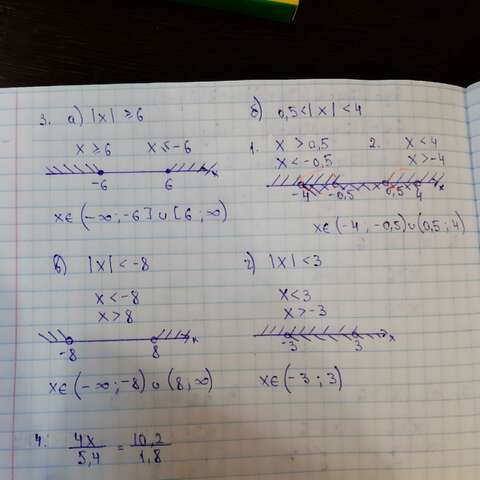 3. а) |x| ≥ 6
x ≥ 6   x ≤ -6
-6   6   x
x ∈ (-∞; -6] ∪ [6; ∞)
б) 0,5 < |x| < 4
1. x > 0,5   2. x < 4
x < -0,5   x > -4
-4   -0,5   0,5   4   x
x ∈ (-4; -0,5) ∪ (0,5; 4)
в) |x| < -8
x < -8
x > 8
-8   8   x
x ∈ (-∞; -8) ∪ (8; ∞)
г) |x| < 3
x < 3
x > -3
-3   3   x
x ∈ (-3; 3)
4. 4x/5,4 = 10,2/1,8